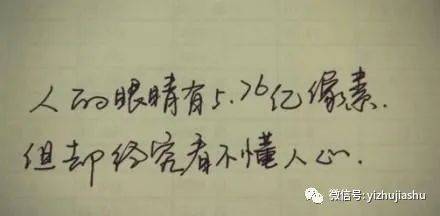 人的眼睛有5.76亿像素.
但却终究看不懂人心.
微信号: yizhujiashu